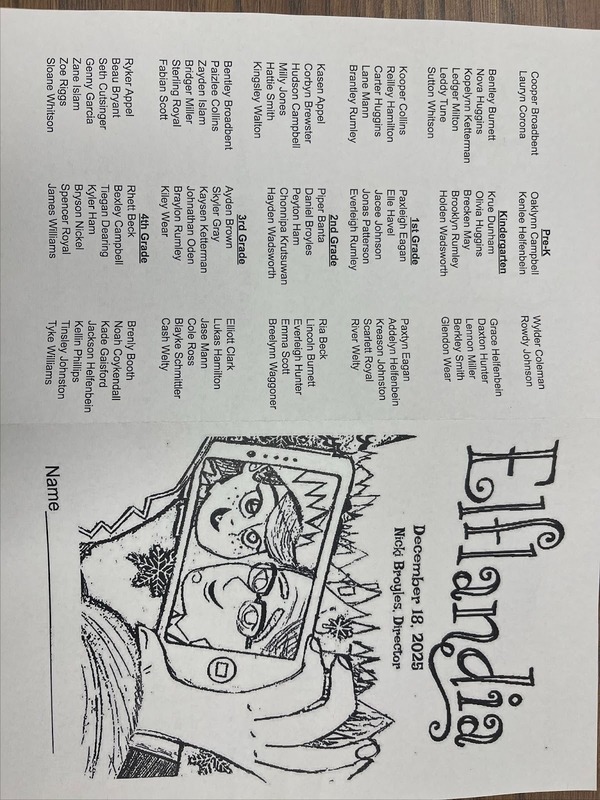 Pre-K
Cooper Broadbent
Lauryn Corona
Oaklynn Campbell
Kenlee Helfenbein
Wylder Coleman
Rowdy Johnson
Kindergarten
Bentley Burnett
Nova Huggins
Kopelynn Ketterman
Ledger Milton
Leddy Tune
Sutton Whitson
Krue Dunham
Olivia Huggins
Brecken May
Brooklyn Rumley
Holden Wadsworth
Grace Helfenbein
Daxton Hunter
Lennon Miller
Berkley Smith
Glendon Wear
1st Grade
Kooper Collins
Reiley Hamilton
Carter Huggins
Lane Mann
Brantley Rumley
Paxleigh Eagan
Elle Havel
Jacee Johnson
Jonas Patterson
Everleigh Rumley
Paxtyn Eagan
Addelyn Helfenbein
Kreason Johnston
Scarlett Royal
River Welty
2nd Grade
Kasen Appel
Corbyn Brewster
Hudson Campbell
Milly Jones
Hattie Smith
Kingsley Walton
Piper Banta
Daniel Broyles
Peyton Ham
Chonnipa Krutsuwan
Hayden Wadsworth
Ria Beck
Lincoln Burnett
Everleigh Hunter
Emma Scott
Breelynn Waggoner
3rd Grade
Bentley Broadbent
Paizlee Collins
Zayden Islam
Bridger Miller
Sterling Royal
Fabian Scott
Ayden Brown
Skyler Gray
Kaysen Ketterman
Johnathan Oden
Braylon Rumley
Kiley Wear
Elliott Clark
Lukas Hamilton
Jase Mann
Cole Ross
Blayke Schmittler
Cash Welty
4th Grade
Ryker Appel
Beau Bryant
Seth Cutsinger
Genny Garcia
Zane Islam
Zoe Riggs
Sloane Whitson
Rhett Beck
Bexley Campbell
Tiegan Dearing
Kyler Ham
Bryson Nickel
Spencer Royal
James Williams
Brenly Booth
Noah Coykendall
Kade Gaisford
Jackson Helfenbein
Kellin Phillips
Tinsley Johnston
Tyke Williams
Elflandia
December 18, 2025
Nicki Broyles, Director
Name